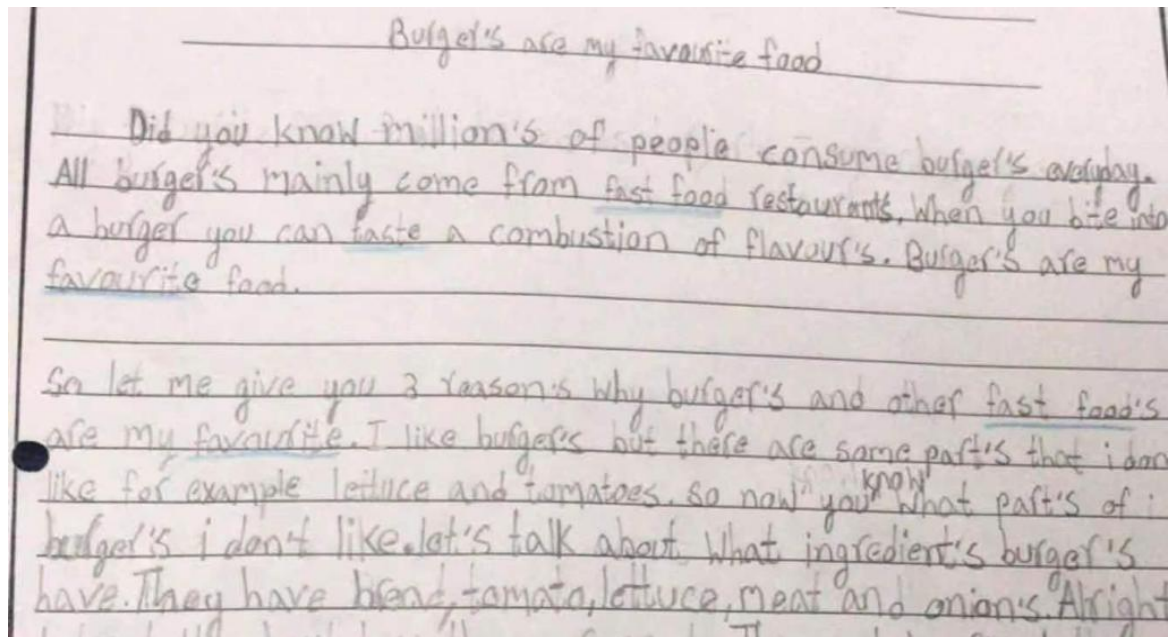 Burger's are my favourite food
Did you know million's of people consume burger's everyday.
All burger's mainly come from fast food restaurants. When you bite into
a burger you can taste a combustion of flavour's. Burger's are my
favourite food.
So let me give you 3 reason's why burger's and other fast food's
are my favourite. I like burger's but there are some part's that i don
like for example lettuce and tomatoes. So now you know what part's of i
burger's i don't like. let's talk about what ingredient's burger's
have. They have bread, tomato, lettuce, meat and onion's. Alright